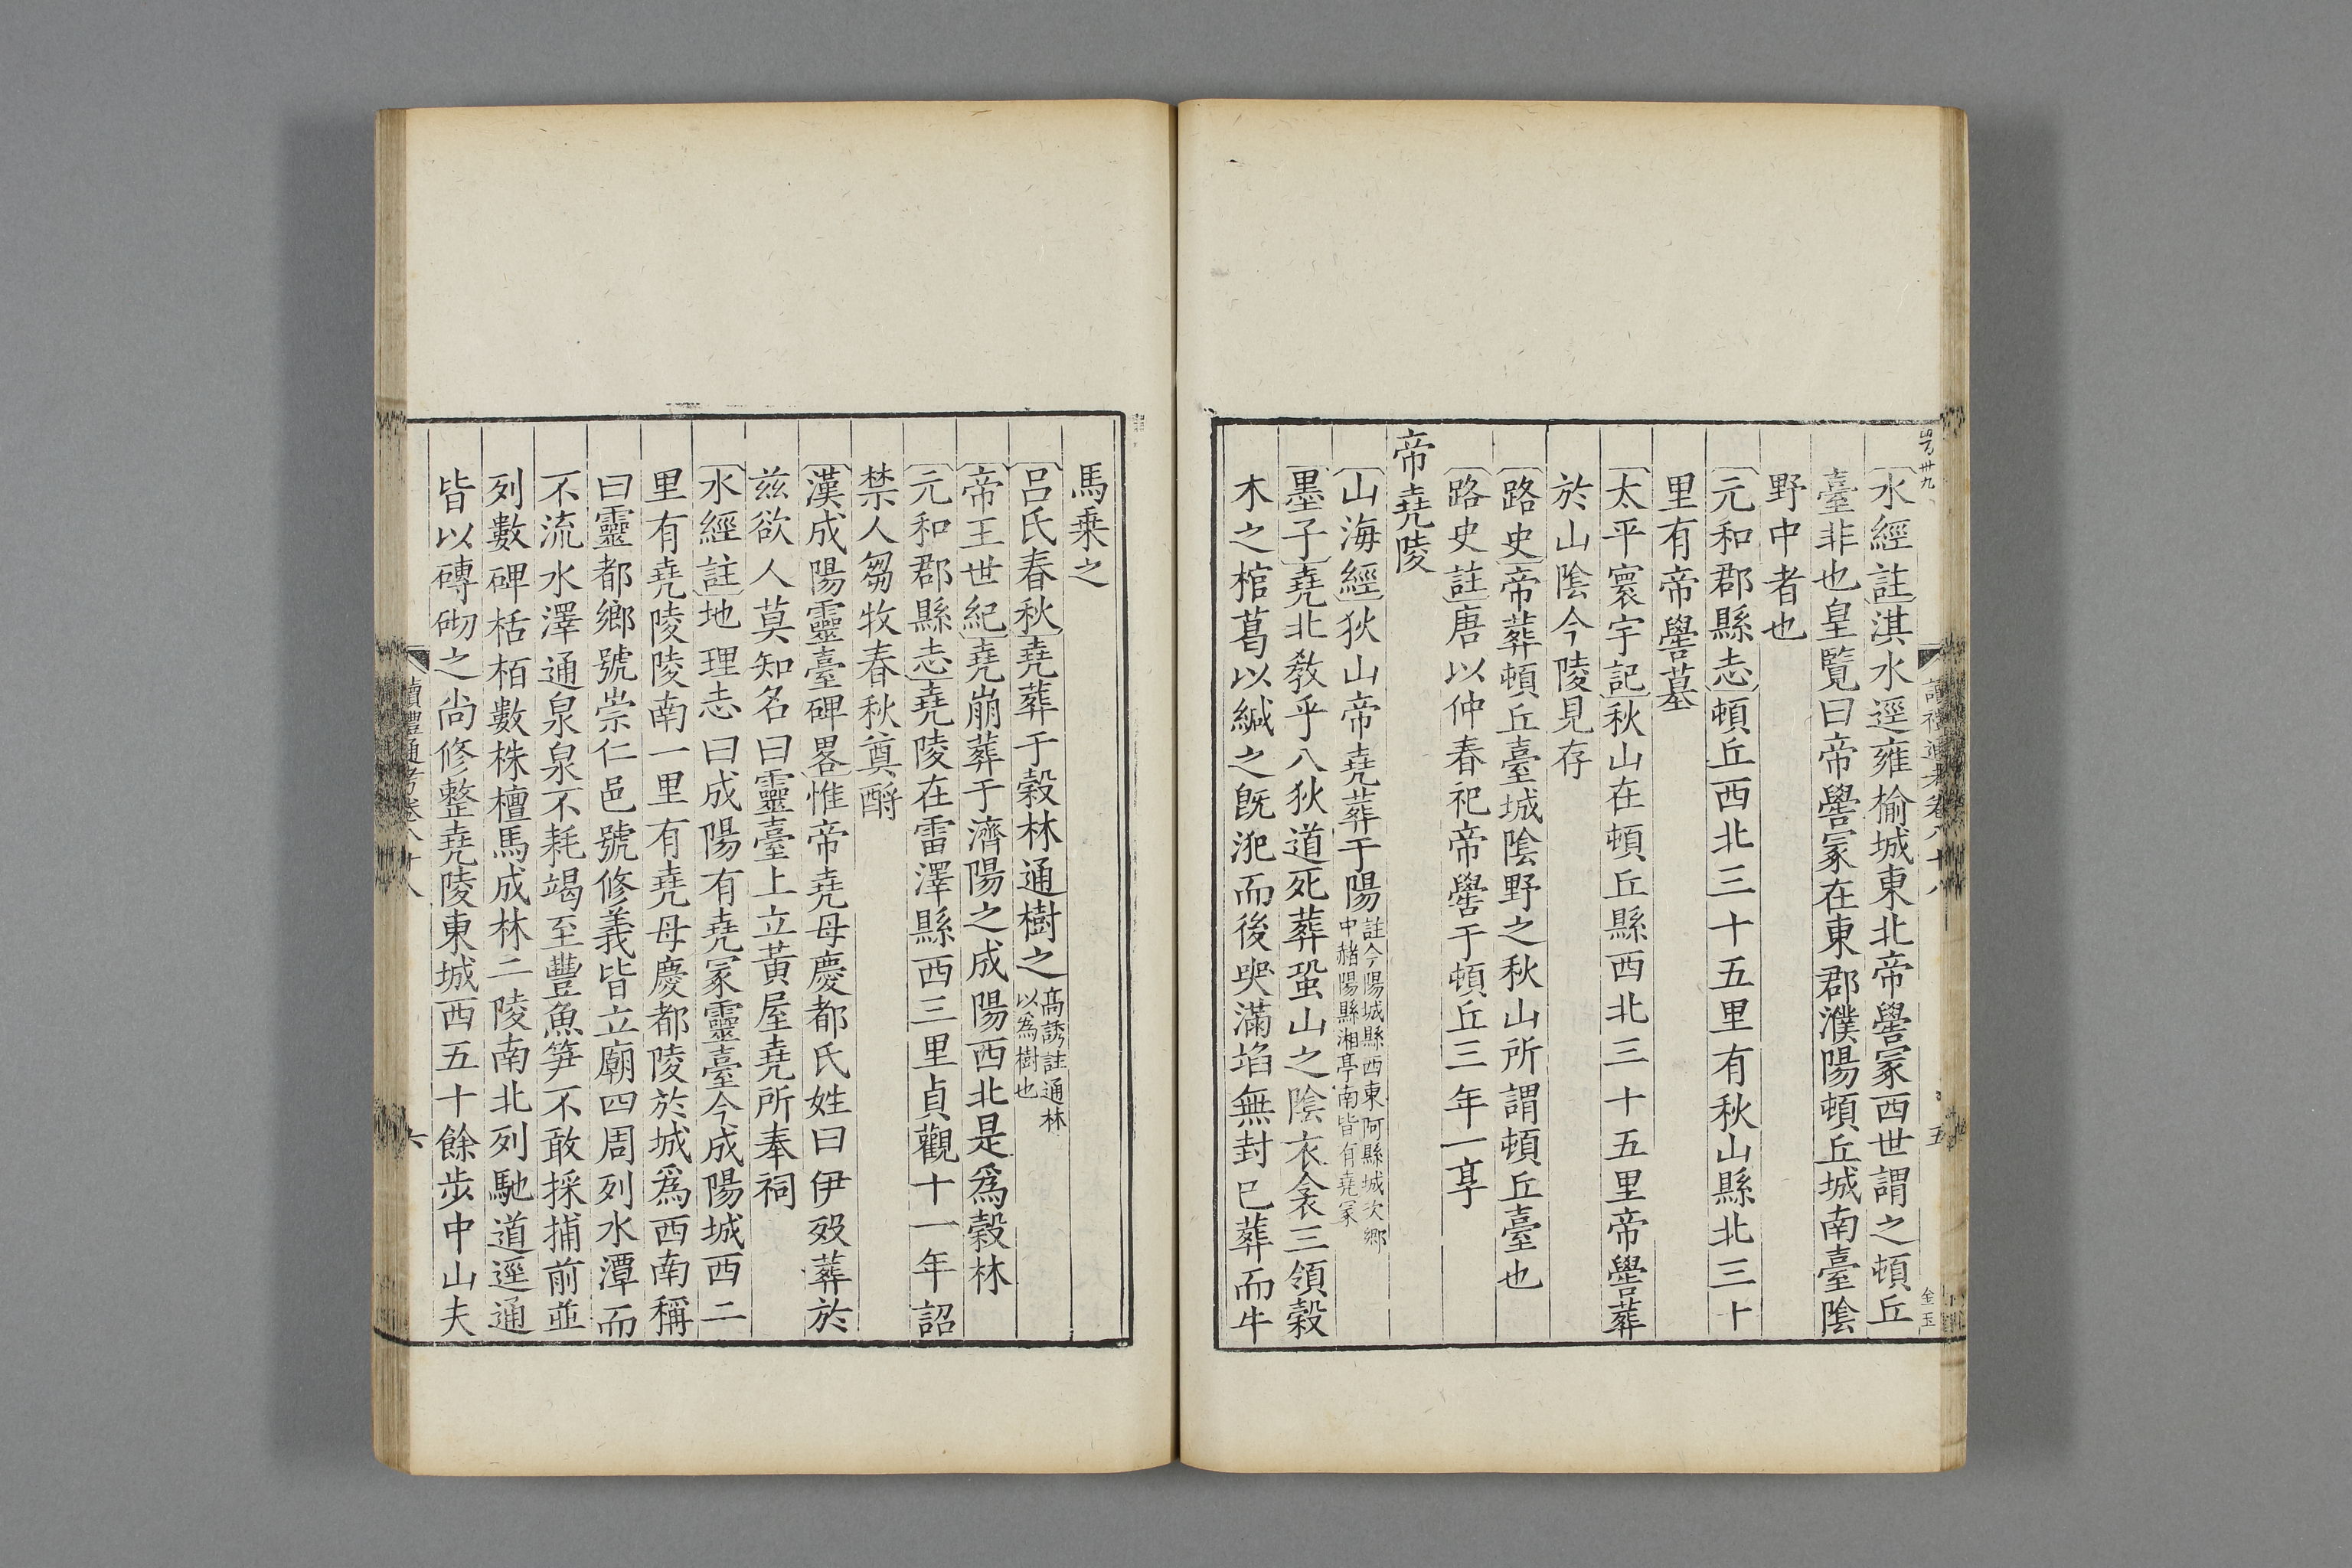 水經註淇水逕雍榆城東北帝嚳冢西世謂之頓丘
臺非也皇覽曰帝嚳冢在東郡濮陽頓丘城南臺陰
野中者也
元和郡縣志頓丘西北三十五里有秋山縣北三十
里有帝嚳墓
太平寰宇記秋山在頓丘縣西北三十五里帝嚳葬
於山陰今陵見存
路史帝葬頓丘臺城陰野之秋山所謂頓丘臺也
路史註唐以仲春祀帝嚳于頓丘三年一享
帝堯陵
山海經狄山帝堯葬于陽註今陽城縣西東阿縣城次鄉
中赭陽縣湘亭南皆有堯冢
墨子堯北教乎八狄道死葬蛩山之陰衣衾三領穀
木之棺葛以緘之旣𣳅而後哭滿埳無封已葬而牛
讀禮通考卷八十八
五
馬乗之
呂氏春秋堯葬于穀林通樹之高誘註通林
以為樹也
帝王世紀堯崩葬于濟陽之成陽西北是爲穀林
元和郡縣志堯陵在雷澤縣西三里貞觀十一年詔
禁人芻牧春秋奠酹
漢成陽靈臺碑畧惟帝堯母慶都氏姓曰伊歿葬於
兹欲人莫知名曰靈臺上立黃屋堯所奉祠
水經註地理志曰成陽有堯冢靈臺今成陽城西二
里有堯陵陵南一里有堯母慶都陵於城爲西南稱
曰靈都鄉號崇仁邑號修義皆立廟四周列水潭而
不流水澤通泉泉不耗竭至豐魚笋不敢採捕前並
列數碑栝栢數株檀馬成林二陵南北列馳道逕通
皆以磚砌之尚修整堯陵東城西五十餘步中山夫
讀禮通考卷八十八
六